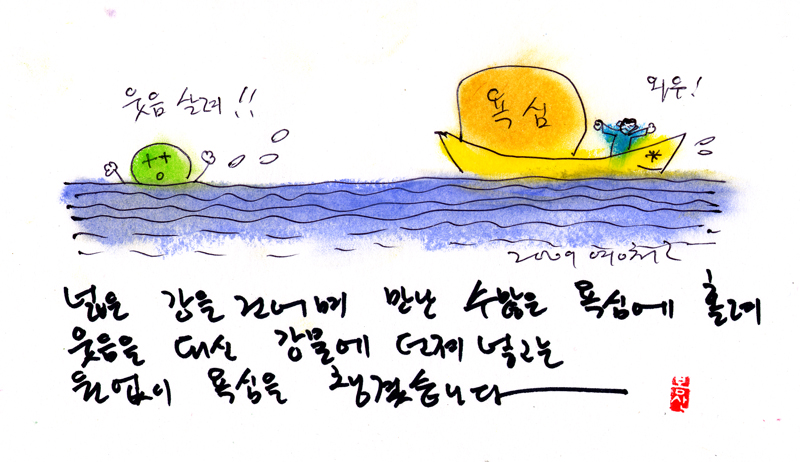 웃음 살려!!
와우!
욕심
2009
넓은 강을 건너며 만난 수많은 욕심에 홀려
웃음을 대신 강물에 던져 넣고는
원없이 욕심을 챙겼습니다